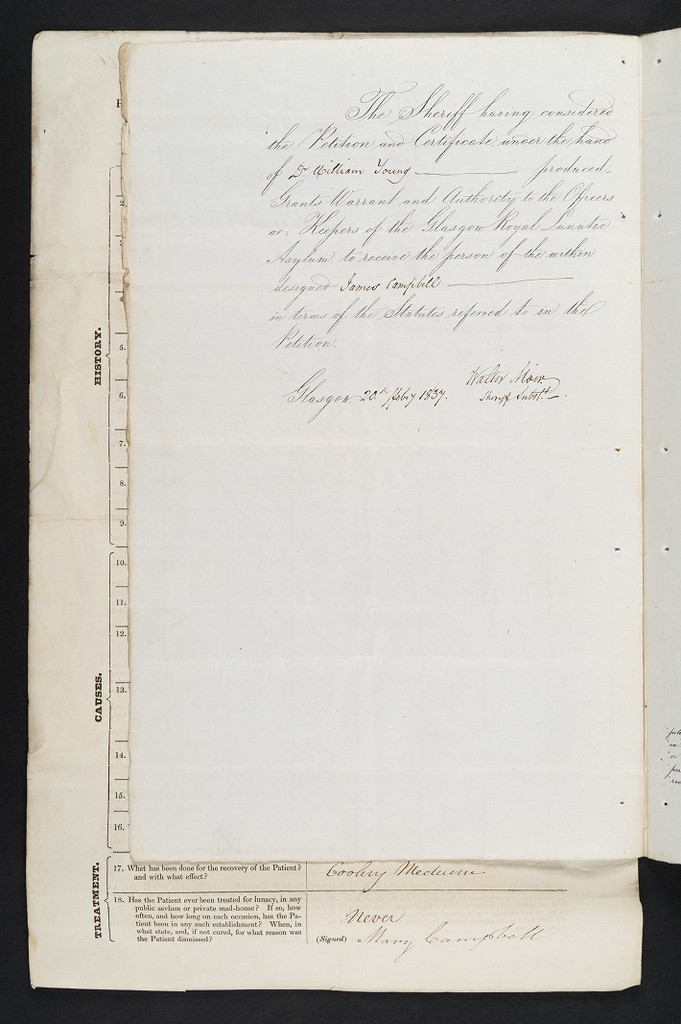 The Sheriff having considered
the Petition and Certificate under the hand
of Dr William Young produced
Grants Warrant and Authority to the Officers
or Keepers of the Glasgow Royal Lunatic
Asylum to receive the person of the within
designed James Campbell
in terms of the Statutes referred to in the
Petition.
Glasgow, 20th Feby 1837.
Walter Moir
Sheriff Substt.
HISTORY.
2.
3.
4.
5.
6.
7.
8.
9.
CAUSES.
10.
11.
12.
13.
14.
15.
16.
TREATMENT.
17. What has been done for the recovery of the Patient?
and with what effect?
Cooling Medecine
18. Has the Patient ever been treated for lunacy, in any
public asylum or private mad-house? If so, how
often, and how long on each occasion, has the Pa-
tient been in any such establishment? When, in
what state, and, if not cured, for what reason was
the Patient dismissed?
Never
(Signed) Mary Campbell